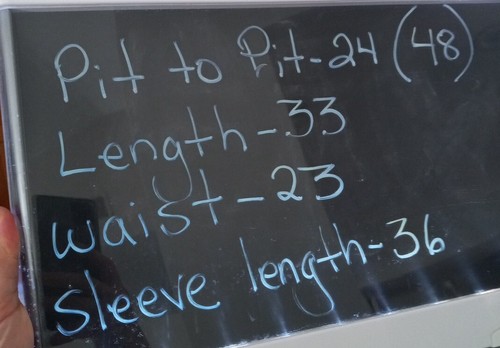 Pit to Pit-24 (48)
Length-33
waist-23
Sleeve length-36